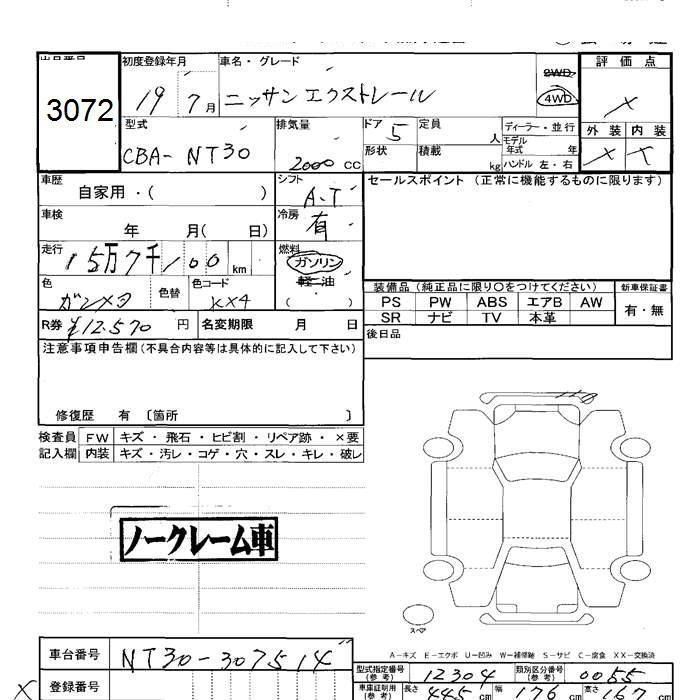 初度登録年月 車名・グレード 2WD 評価点
3072 19 7月 ニッサン エクストレール 4WD ×
型式 排気量 ドア 5 定員 人 ディーラー・並行 外装 内装
CBA- NT30 2000 cc 形状 積載 kg モデル年式 年 ハンドル 左・右 ×
車歴 自家用・( ) シフト A.T セールスポイント(正常に機能するものに限ります)
車検 年 月( 日) 冷房 有
走行 15万7千100 km 燃料 ガソリン
軽油
色 ガンメタ 色替 色コード KX4 ( ) 装備品(純正品に限り○をつけてください) 新車保証書
PS PW ABS エアB AW 有・無
R券 ¥12.570 円 名変期限 月 日 SR ナビ TV 本革
注意事項申告欄(不具合内容等は具体的に記入して下さい) 後日品
修復歴 有 〔箇所 〕
検査員 FW キズ・飛石・ヒビ割・リペア跡・×要
記入欄 内装 キズ・汚レ・コゲ・穴・スレ・キレ・破レ
ノークレーム車
スペア
A-キズ E-エクボ U-凹み W-補修跡 S-サビ C-腐食 XX-交換済
車台番号 NT30-307514 型式指定番号(参考) 12304 類別区分番号(参考) 0055
× 登録番号 車庫証明用(参考) 長さ 445 cm 幅 176 cm 高さ 167 cm